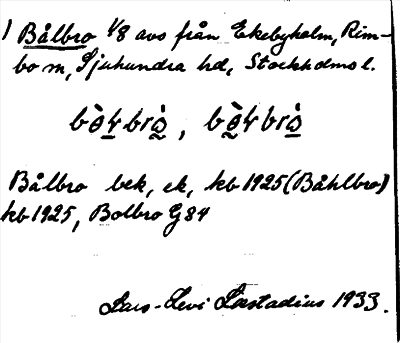 1 Bålbro 1/8 avs från Ekebyholm, Rim-
bo sn, Sjuhundra hd, Stockholms l.
Bålbro bek, ek, kb 1925 (Båhlbro)
kb 1925, Bolbro G84
Lars-Levi Læstadius 1933.